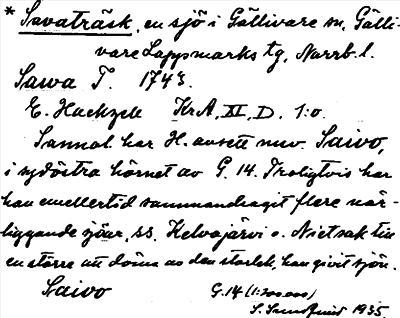 * Savaträsk, en sjö i Gällivare sn, Gälli-
vare Lappmarks tg, Norrb. l.
Sawa T. 1743.
E. Hackzell KrA, XI, D. 1:o.
Sannol. har H. avsett nuv. Saivo,
i sydöstra hörnet av G. 14. Troligtvis har
han emellertid sammandragit flere när-
liggande sjöar, ss. Kelvajärvi o. Nietsak till
en större att döma av den storlek, han givit sjön.
Saivo G. 14 (1:200.000)
S. Sundqvist 1935.